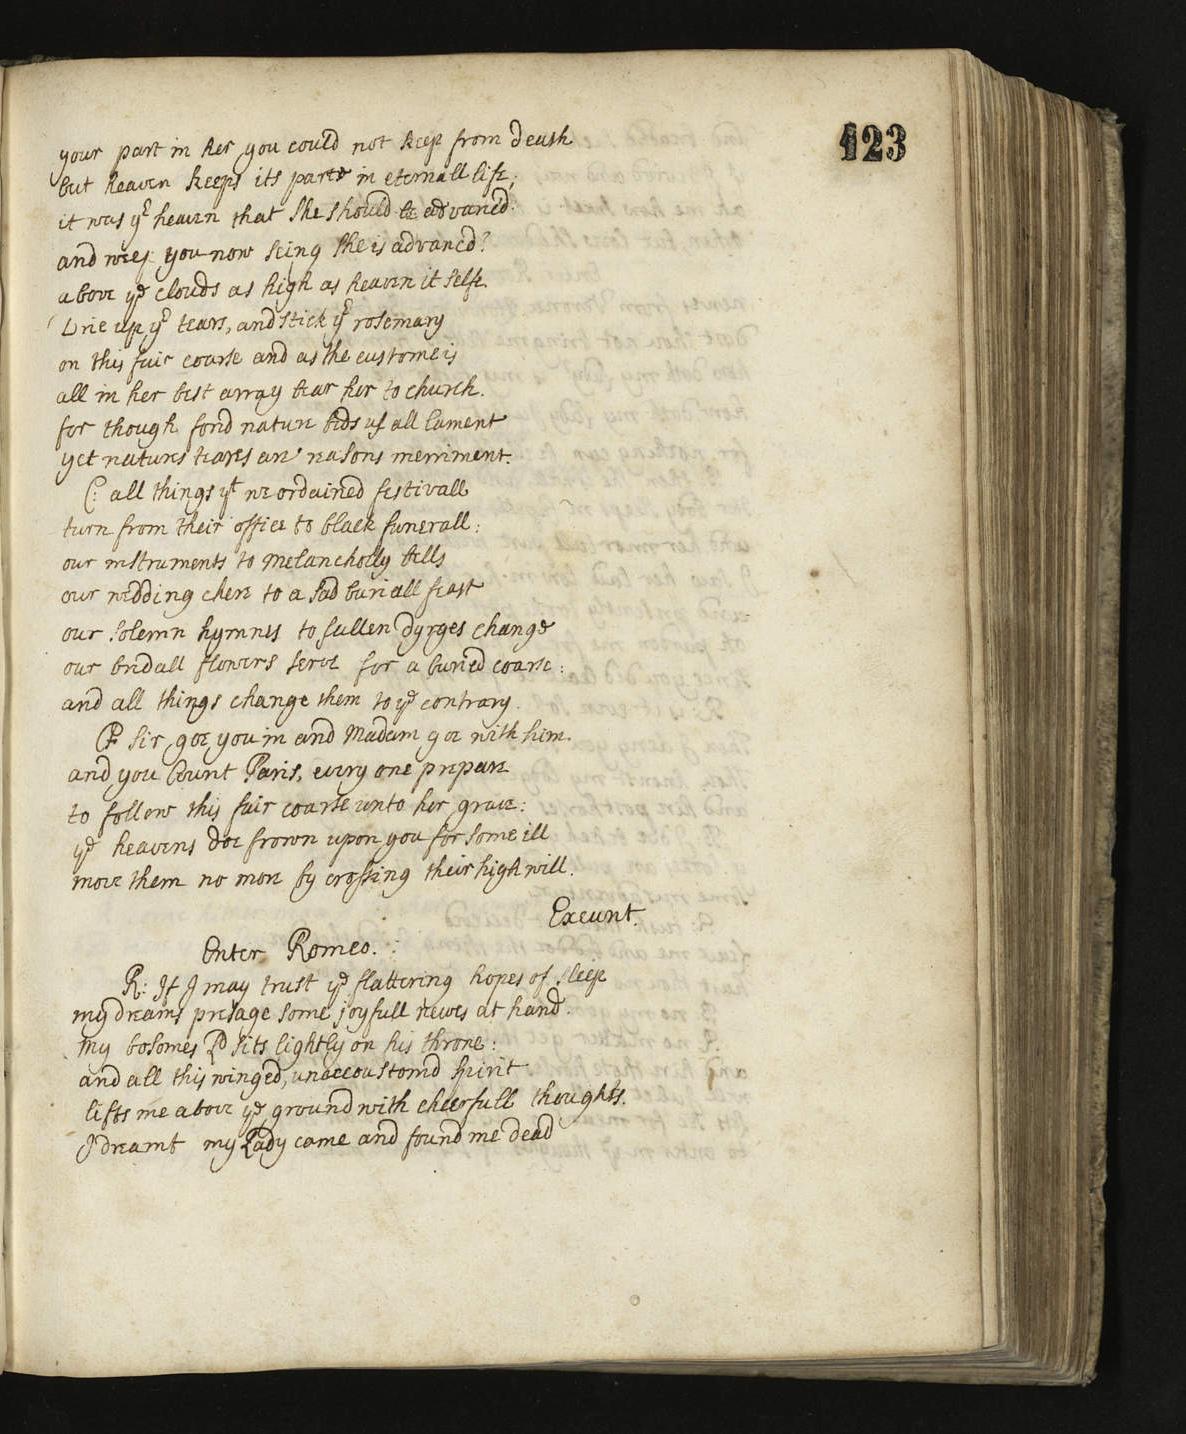 123
your part in her you could not keep from death
but heaven keeps its part in eternall life;
it was yr heaven that she should be advancd.
and weep you now seing she is advancd?
above ye clouds as high as heaven it selfe.
Drie up yr tears, and stick yr rosemary
on this fair coarse and as the custome is
all in her best array bear her to church.
for though fond nature bids us all lament
yet natures teares are reasons merriment.
C: all things yt we ordained festivall
turn from their office to black funerall:
our instruments to melancholly bells
our wedding chere to a sad buriall feast
our solemn hymnes to sullen dyrges change
our bridall flowers serve for a buried coarse:
and all things change them to ye contrary.
Sir goe you in and Madam goe with him.
and you Count Paris, every one prepare
to follow this fair coarse unto her grave:
ye heavens doe frown upon you for some ill
move them no more by crossing their high will.
Exeunt.
Enter Romeo.
R: If I may trust ye flattering hopes of sleep
my dreams presage some joyfull newes at hand.
my bosomes Ld sits lightly on his throne:
and all this winged, unaccoustomd spirit
lifts me above ye ground with cheerfull thoughts.
I dreamt my Lady came and found me dead